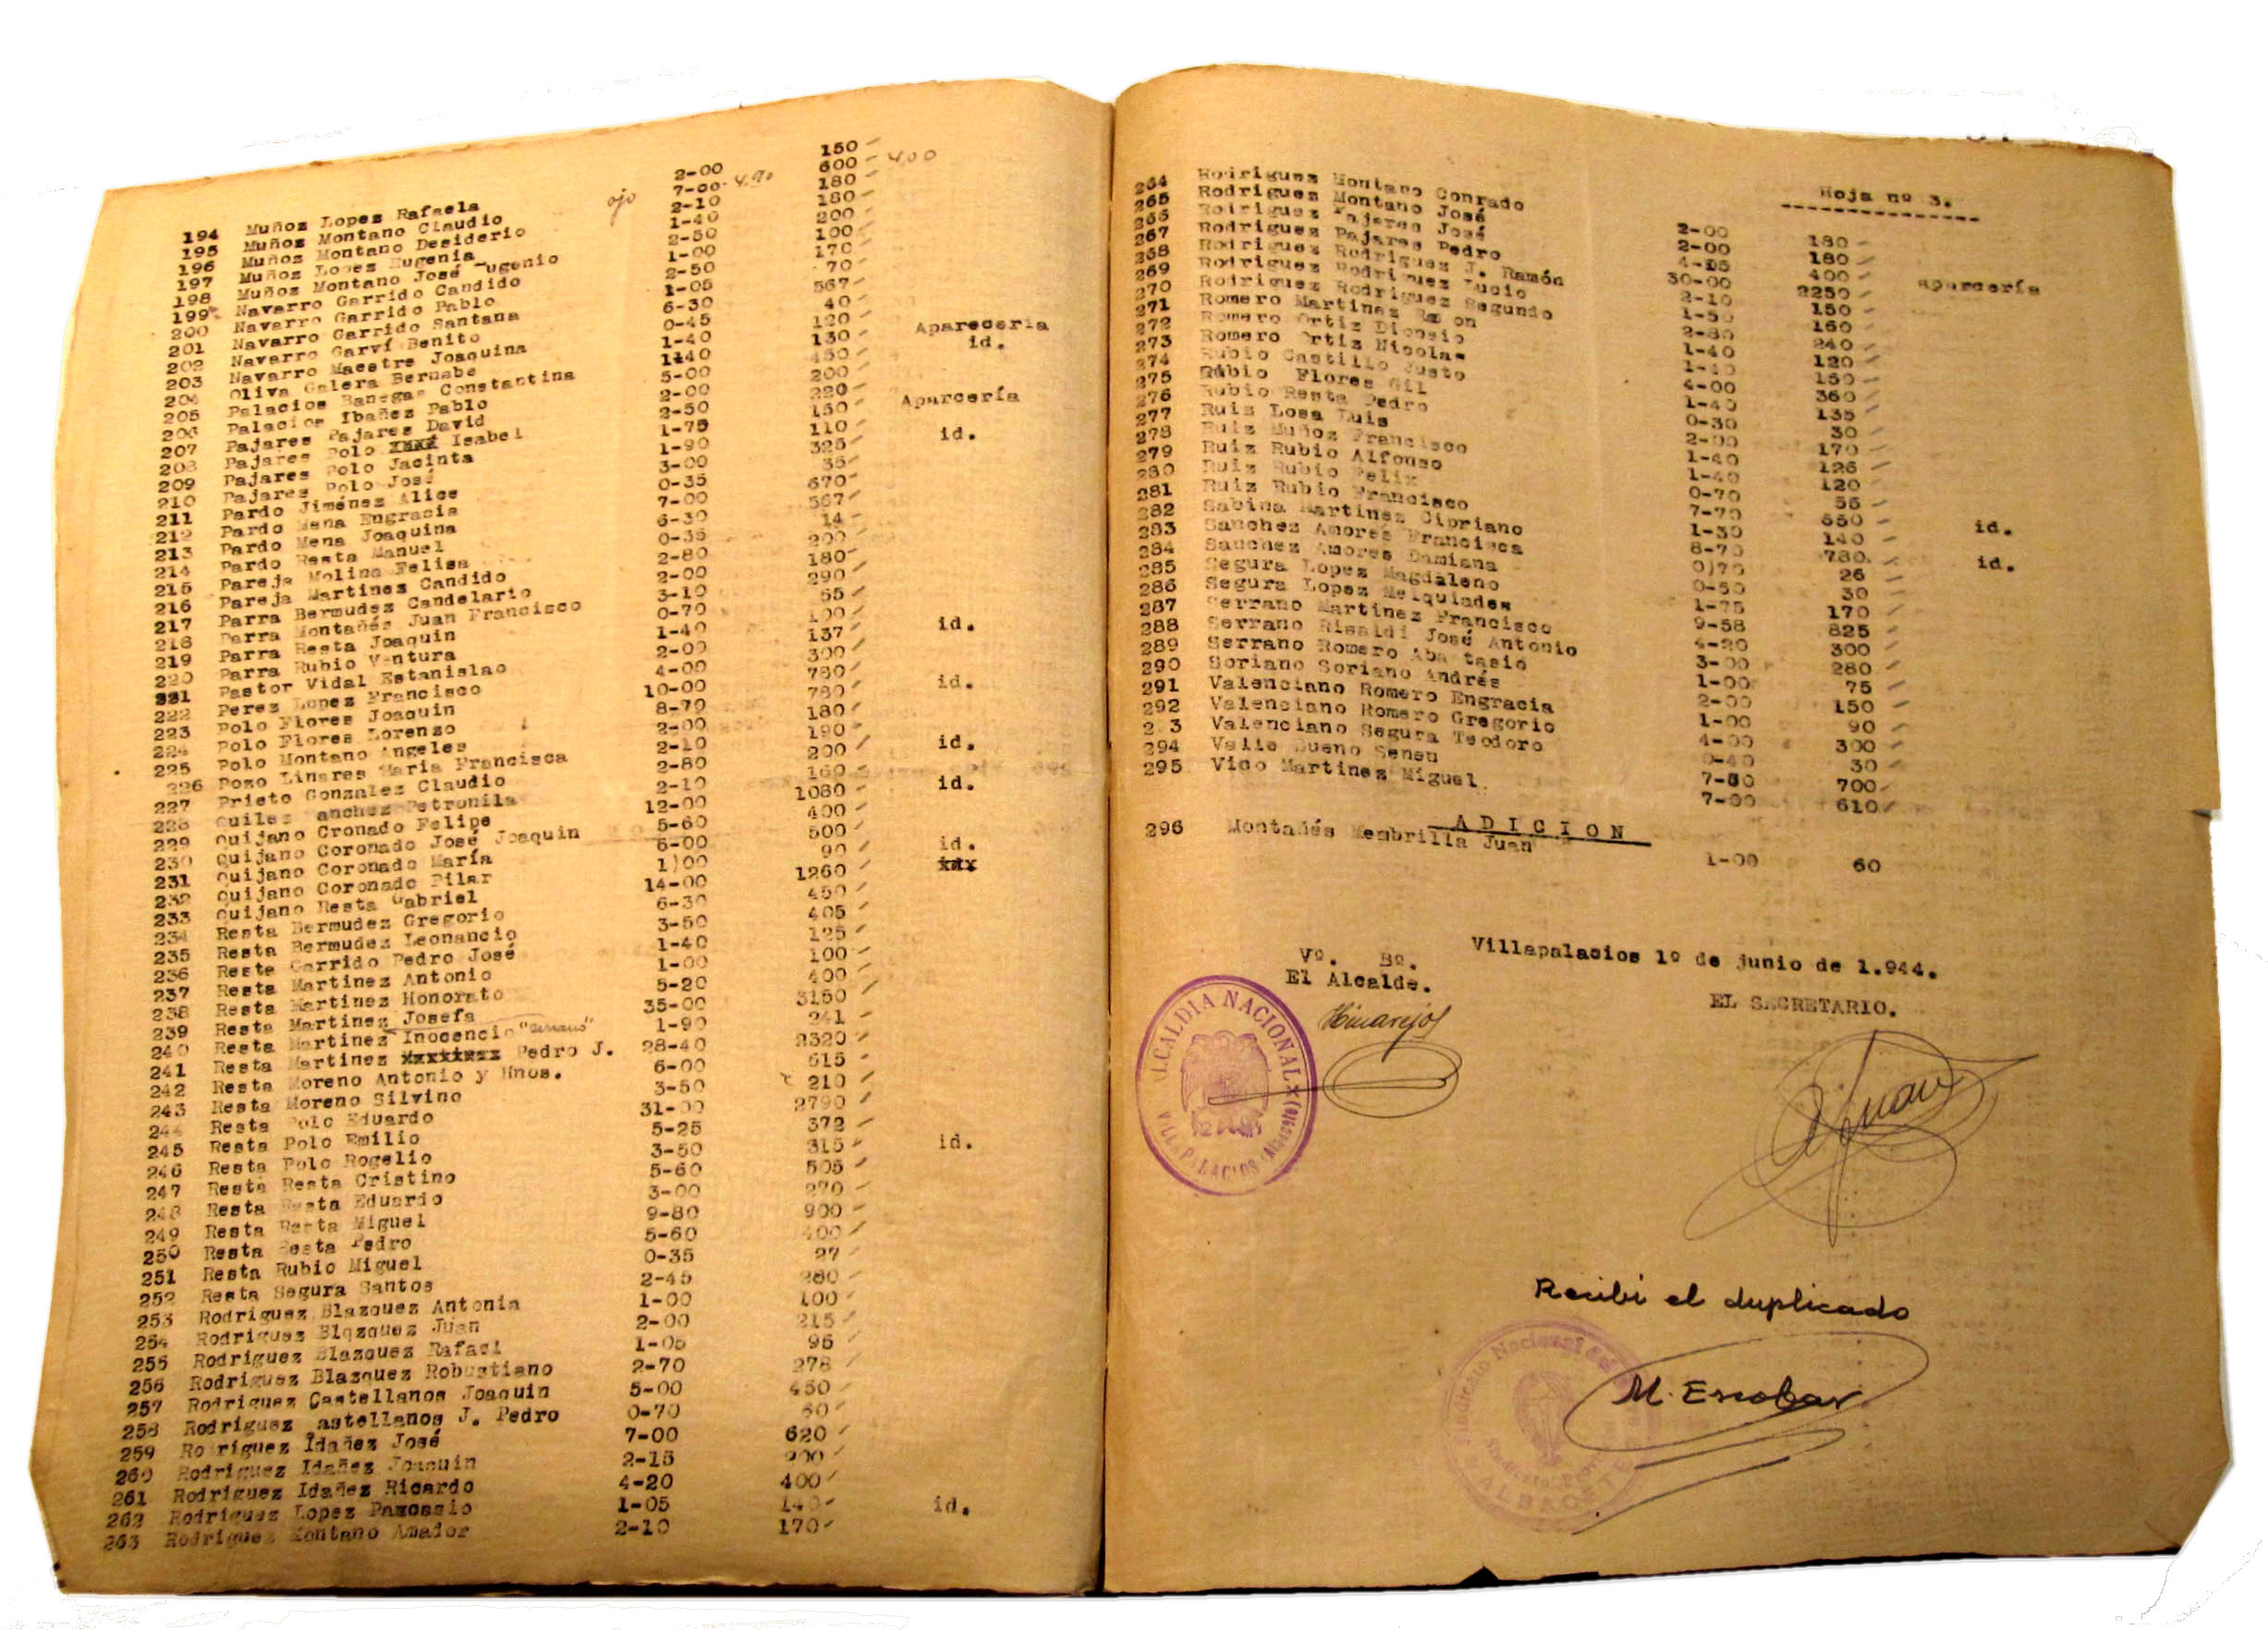 194 Muñoz Lopez Rafaela 2-00 150
195 Muñoz Montano Claudio ojo 7-00 4.90 600 400
196 Muñoz Montano Desiderio 2-10 180
197 Muñoz Lopez Eugenia 1-40 180
198 Muñoz Montano José Eugenio 2-50 200
199 Navarro Garrido Candido 1-00 100
200 Navarro Garrido Pablo 2-50 170
201 Navarro Garrido Santana 1-05 70
202 Navarro Garví Benito 6-30 567
203 Navarro Maestre Joaquina 0-45 40
204 Oliva Galera Bernabe 1-40 120 Aparecería
205 Palacios Banegas Constantina 1-40 130 id.
206 Palacios Ibañez Pablo 5-00 450
207 Pajares Pajares David 2-00 200
208 Pajares Polo Isabel 2-50 220 Aparcería
209 Pajares Polo Jacinta 1-75 150
210 Pajares Polo José 1-90 110 id.
211 Pardo Jiménez Alice 3-00 325
212 Pardo Mena Engracia 0-35 35
213 Pardo Mena Joaquina 7-00 670
214 Pardo Resta Manuel 6-30 567
215 Pareja Molina Felisa 0-35 14
216 Pareja Martinez Candido 2-80 200
217 Parra Bermudez Candelario 2-00 180
218 Parra Montañés Juan Francisco 3-10 290
219 Parra Resta Joaquin 0-70 65
220 Parra Rubio Ventura 1-40 100 id.
221 Pastor Vidal Estanislao 2-00 137
222 Perez Lopez Francisco 4-00 300
223 Polo Flores Joaquin 10-00 780 id.
224 Polo Flores Lorenzo 8-70 780
225 Polo Montano Angeles 2-00 180
226 Pozo Linares Maria Francisca 2-10 190 id.
227 Prieto Gonzalez Claudio 2-80 200
228 Quilez anchez Petronila 2-10 160 id.
229 Quijano Cronado Felipe 12-00 1080
230 Quijano Coronado José Joaquin 5-60 400
231 Quijano Coronado María 6-00 500 id.
232 Quijano Coronado Pilar 1)00 90 xxx
233 Quijano Resta Gabriel 14-00 1260
234 Resta Bermudez Gregorio 6-30 450
235 Resta Bermudez Leonancio 3-50 405
236 Resta Garrido Pedro José 1-40 125
237 Resta Martinez Antonio 1-00 100
238 Resta Martinez Honorato 5-20 400
239 Resta Martinez Josefa 35-00 3150
240 Resta Martinez Inocencio 1-90 241
241 Resta Martinez Pedro J. 28-40 2320
242 Resta Moreno Antonio y Hnos. 6-00 615
243 Resta Moreno Silvino 3-50 210
244 Resta Polo Eduardo 31-00 2790
245 Resta Polo Emilio 5-25 372
246 Resta Polo Rogelio 3-50 315 id.
247 Resta Resta Cristino 5-60 505
248 Resta Resta Eduardo 3-00 270
249 Resta Resta Miguel 9-80 900
250 Resta Resta Pedro 5-60 400
251 Resta Rubio Miguel 0-35 27
252 Resta Segura Santos 2-45 280
253 Rodriguez Blazquez Antonia 1-00 100
254 Rodriguez Blqzquez Juan 2-00 215
255 Rodriguez Blazquez Rafael 1-05 95
256 Rodriguez Blazquez Robustiano 2-70 278
257 Rodriguez Castellanos Joaquin 5-00 450
258 Rodriguez astellanos J. Pedro 0-70 60
259 Ro riguez Idañez José 7-00 620
260 Rodriguez Idañez Joaquin 2-15 200
261 Rodriguez Idañez Ricardo 4-20 400
262 Rodriguez Lopez Pascasio 1-05 140 id.
263 Rodriguez Montano Amador 2-10 170
Hoja nº 3.
264 Rodriguez Montano Conrado 2-00 180
265 Rodriguez Montano José 2-00 180
266 Rodriguez Pajares José 4-15 400 aparcería
267 Rodriguez Pajares Pedro 30-00 2250
268 Rodriguez Rodriguez J. Ramón 2-10 150
269 Rodriguez Rodriguez Lucio 1-50 160
270 Rodriguez Rodriguez Segundo 2-80 240
271 Romero Martinez Ramon 1-40 120
272 Romero Ortiz Dionsio 1-40 150
273 Romero Ortiz Nicolas 4-00 360
274 Rubio Castillo Justo 1-40 135
275 Rubio Flores Gil 0-30 30
276 Rubio Resta Pedro 2-00 170
277 Ruiz Losa Luis 1-40 126
278 Ruiz Muñoz Francisco 1-40 120
279 Ruiz Rubio Alfonso 0-70 55
280 Ruiz Rubio Felix 7-70 550 id.
281 Ruiz Rubio Francisco 1-30 140
282 Sabina Martinez Cipriano 8-70 780 id.
283 Sanchez Amores Francisca 0)70 26
284 Sanchez Amores Damiana 0-50 30
285 Segura Lopez Magdaleno 1-75 170
286 Segura Lopez Melquiades 9-58 825
287 Serrano Martinez Francisco 4-20 300
288 Serrano Risaldi José Antonio 3-00 260
289 Serrano Romero Aba tasio 1-00 75
290 Soriano Soriano Andrés 2-00 150
291 Valenciano Romero Engracia 1-00 90
292 Valenciano Romero Gregorio 4-00 300
2 3 Valenciano Segura Teodoro 0-40 30
294 Valle Bueno Senen 7-50 700
295 Vico Martinez Miguel. 7-00 610
A D I C I O N
296 Montañés Membrilla Juan 1-00 60
Villapalacios 1º de junio de 1.944.
Vº. Bº.
El Alcalde.
EL SECRETARIO.
Hinarejos
ALCALDIA NACIONAL
VILLAPALACIOS (Albacete)
Recibi el duplicado
M. Escobar
ALBACETE